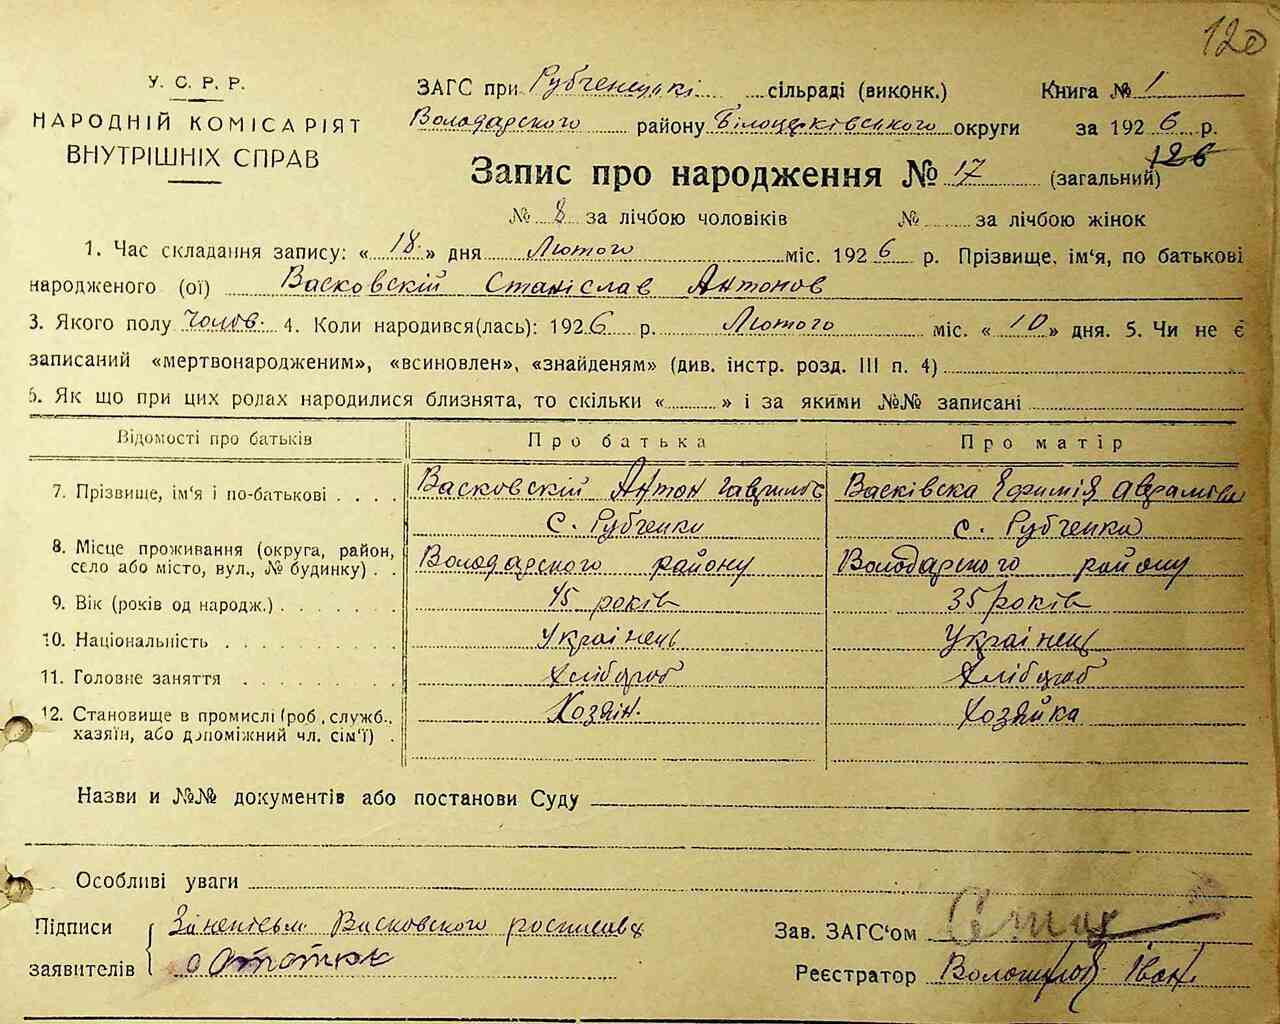 120
У. С. Р. Р.
НАРОДНІЙ КОМІСАРІЯТ
ВНУТРІШНІХ СПРАВ
ЗАГС при Рубченецькі сільраді (виконк.) Книга № 1
Володарского району Білоцерківського округи за 1926 р.
Запис про народження № 17 (загальний) 126
№ 8 за лічбою чоловіків № за лічбою жінок
1. Час складання запису: « 18 » дня Лютого міс. 1926 р. Прізвище, ім'я, по батькові
народженого (ої) Васковскій Станіслав Антонов
3. Якого полу Чолов. 4. Коли народився(лась): 1926 р. Лютого міс. « 10 » дня. 5. Чи не є
записаний «мертвонародженим», «всиновлен», «знайденям» (див. інстр. розд. III п. 4)
6. Як що при цих родах народилися близнята, то скільки « » і за якими №№ записані
Відомості про батьків Про батька Про матір
7. Прізвище, ім'я і по-батькові . . . . Васковскій Антон Васківска Ефимія
с. Рубченки с. Рубченки
8. Місце проживання (округа, район, село або місто, вул., № будинку) . . Володарского району Володарского району
9. Вік (років од народж.) . . . . . . . 45 років 35 років
10. Національність . . . . . . . . . . Українець Українець
11. Головне заняття . . . . . . . Хлібороб Хлібороб
12. Становище в промислі (роб., служб., хазяїн, або допоміжний чл. сім'ї) . Хозяін. Хозяйка
Назви и №№ документів або постанови Суду
Особливі уваги
Підписи Васковского
заявителів
Зав. ЗАГС'ом
Реєстратор Іван